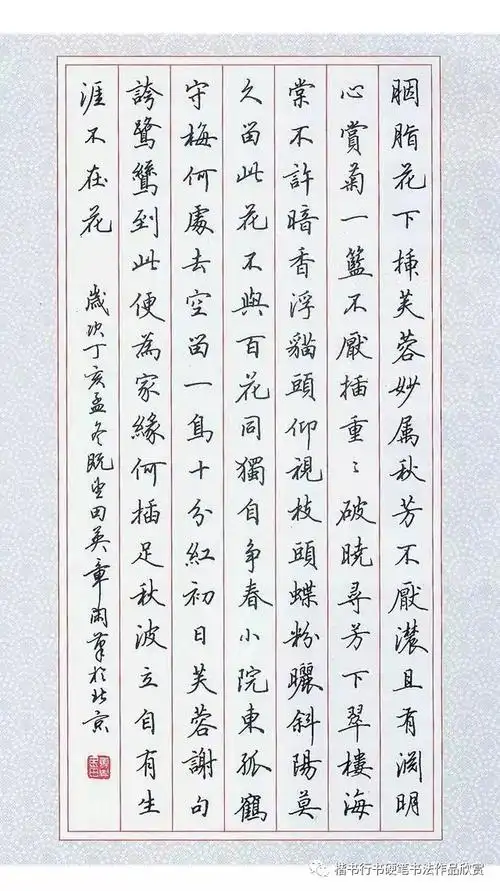 胭脂花下插芙蓉妙属秋芳不厭濃且有渊明
心賞菊一籃不厭插重〻破曉尋芳下翠樓海
棠不許暗香浮貓頭仰視枝頭蝶粉曬斜陽莫
久留此花不與百花同獨自争春小院東孤鶴
守梅何處去空留一鳥十分紅初日芙蓉謝句
誇鷺鷥到此便為家緣何插足秋波立自有生
涯不在花
歲次丁亥孟冬既望田英章閑筆於北京
楷书行书硬笔书法作品欣赏